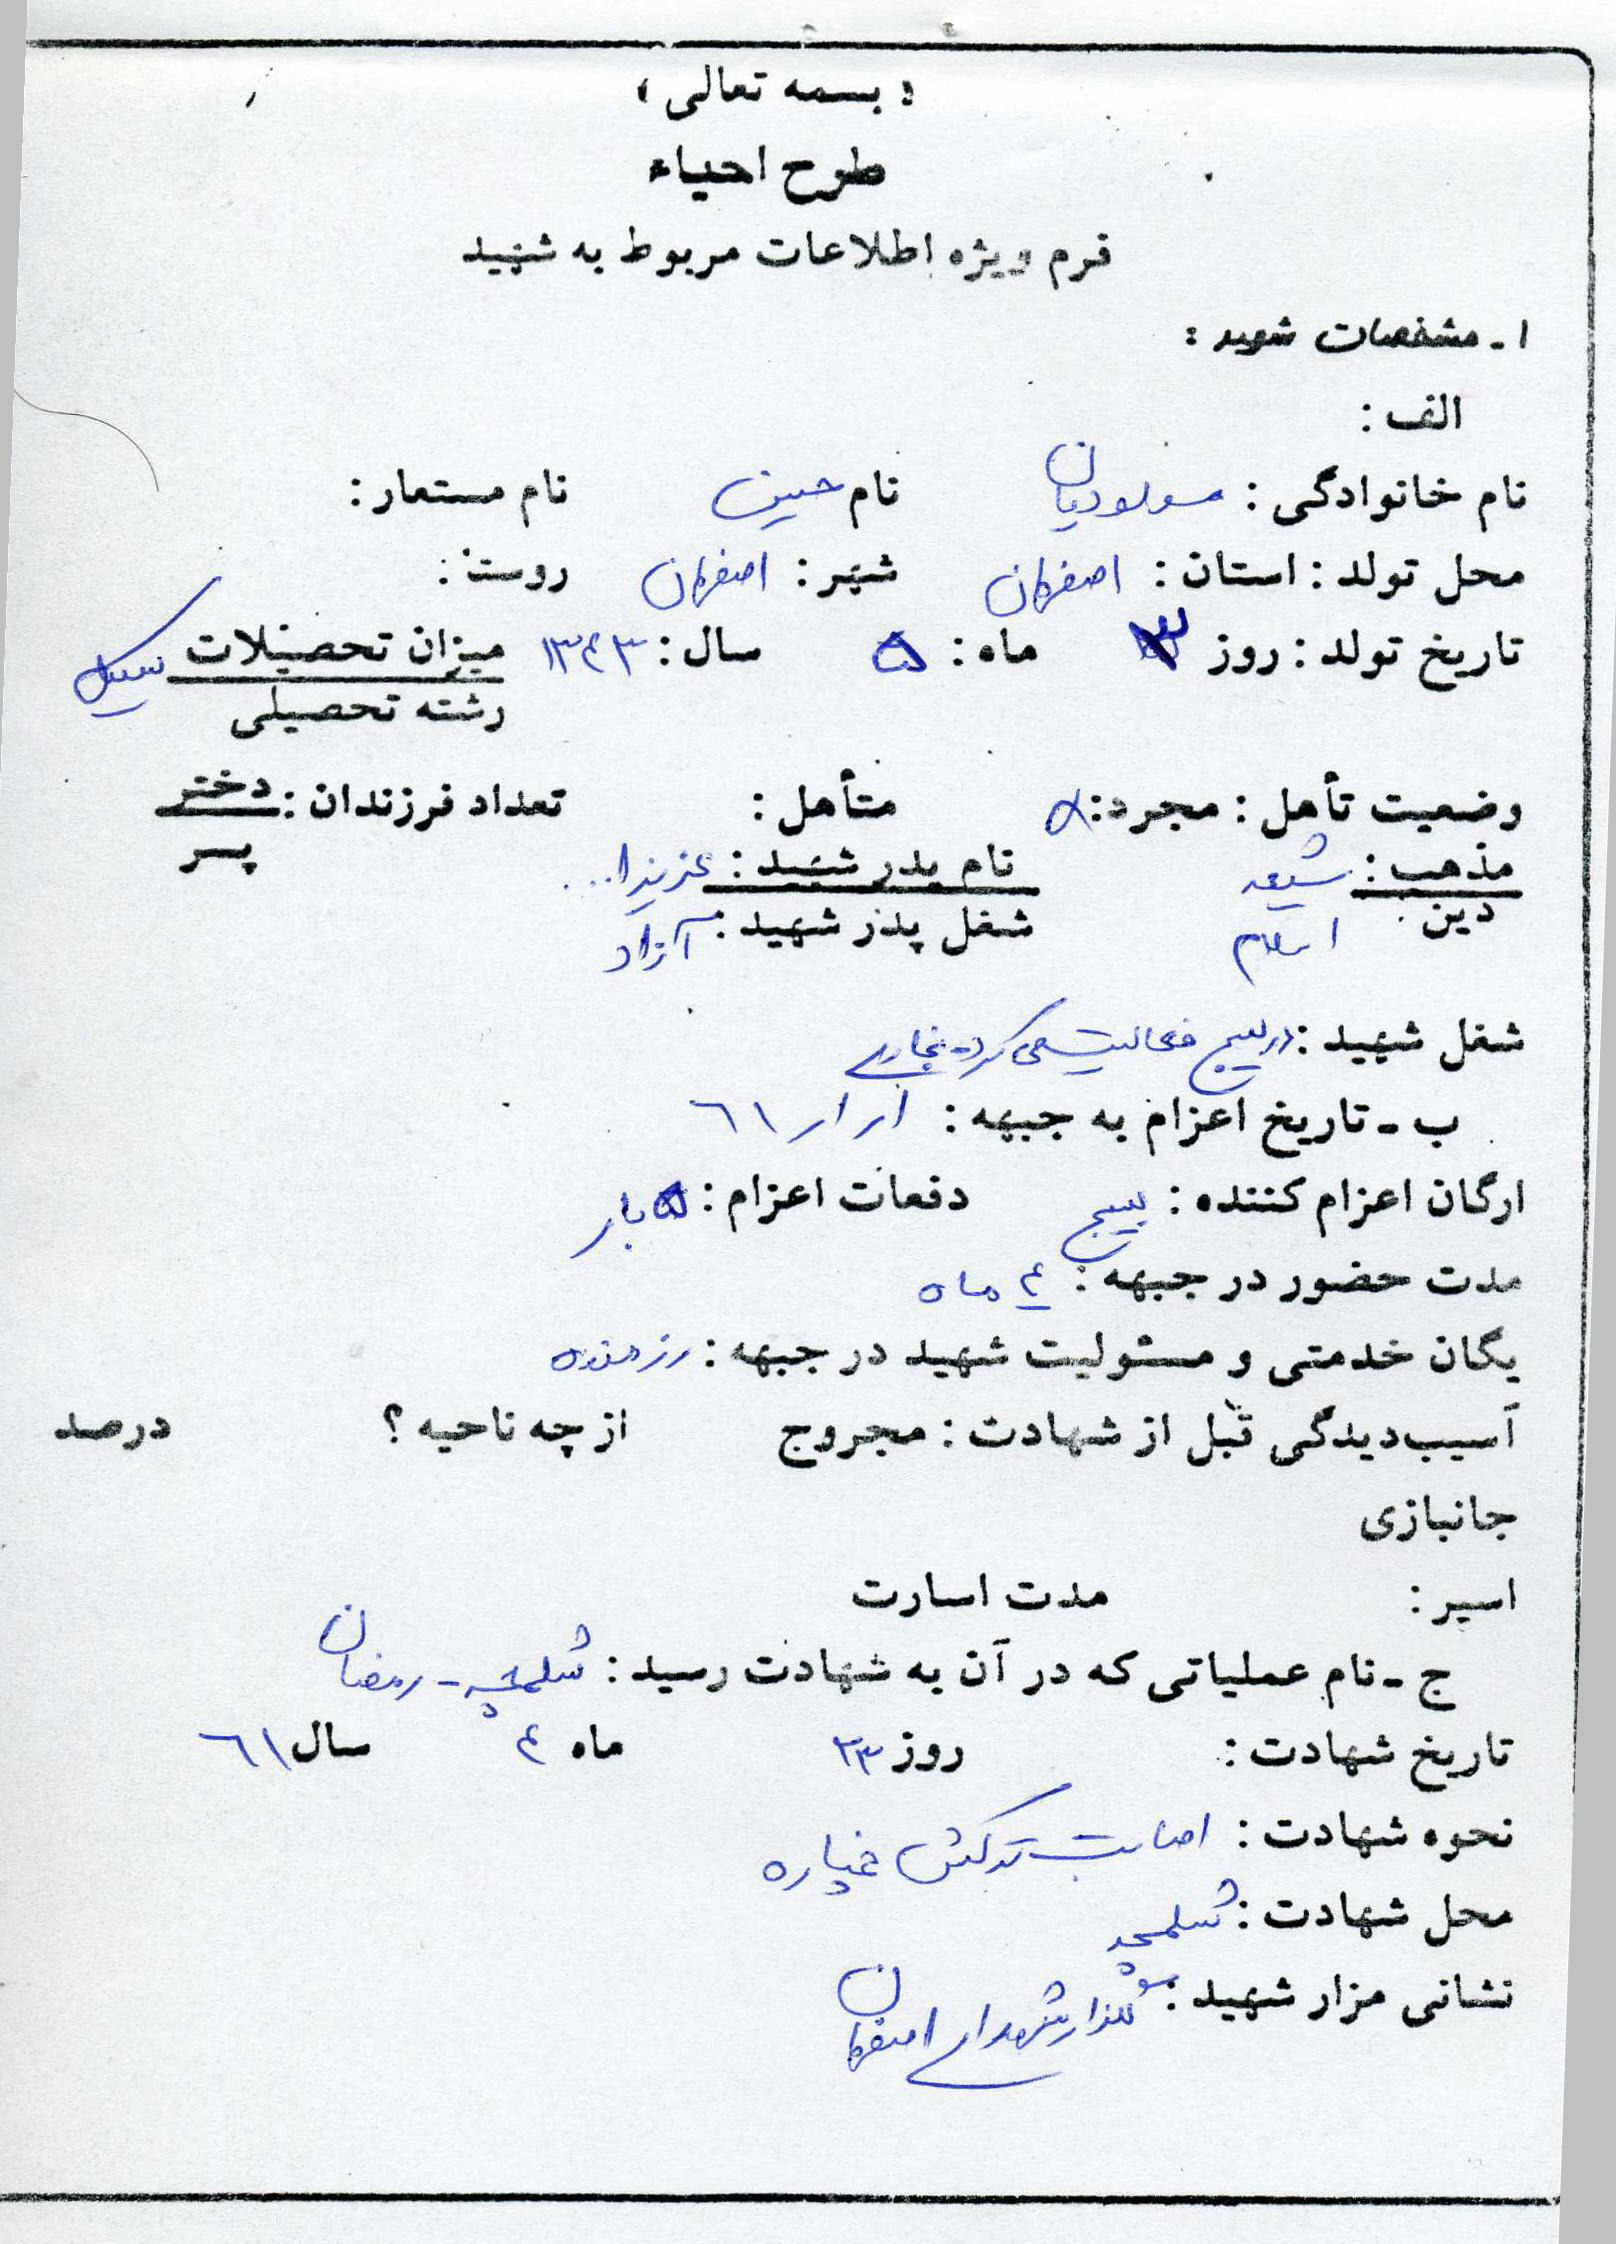 « بسمه تعالی »
طرح احیاء
فرم ویژه اطلاعات مربوط به شهید
۱ـ مشخصات شهید :
الف :
نام خانوادگی : مولودیان نام حسین نام مستعار :
محل تولد : استان : اصفهان شهر : اصفهان روستا :
تاریخ تولد : روز ۳ ماه : ۵ سال : ۱۳۴۳ میزان تحصیلات سیکل
رشته تحصیلی
وضعیت تأهل : مجرد : متأهل : تعداد فرزندان : دختر
پسر
مذهب : شیعه نام پدر شهید : عزیزا...
دین : اسلام شغل پدر شهید : آزاد
شغل شهید : در بسیج فعالیت می کرد - نجاری
ب ـ تاریخ اعزام به جبهه : ۶۱/۱/۱
ارگان اعزام کننده : بسیج دفعات اعزام : ۵ بار
مدت حضور در جبهه : ۴ ماه
یگان خدمتی و مسئولیت شهید در جبهه : رزمنده
آسیب‌دیدگی قبل از شهادت : مجروح از چه ناحیه ؟ درصد
جانبازی
اسیر : مدت اسارت
ج ـ نام عملیاتی که در آن به شهادت رسید : شلمچه - رمضان
تاریخ شهادت : روز ۲۳ ماه ۴ سال ۶۱
نحوه شهادت : اصابت ترکش خمپاره
محل شهادت : شلمچه
نشانی مزار شهید : گلزار شهدای اصفهان